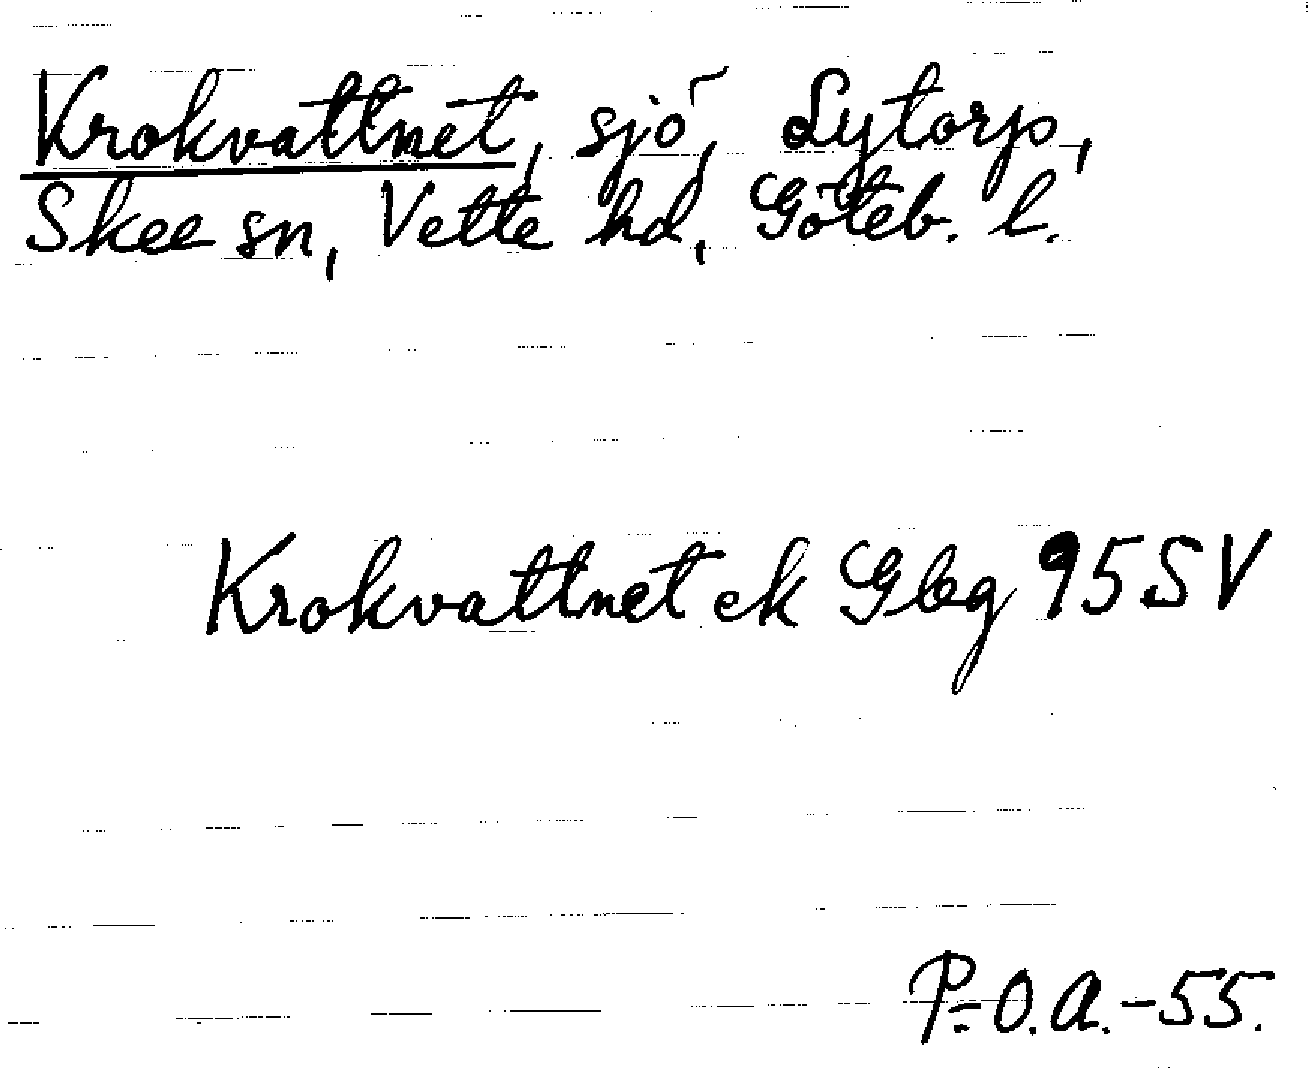 Krokvattnet, sjö, Lytorp,
Skee sn, Vette hd, Göteb. l.
Krokvattnet ek Gbg 95 SV
P.-O.A.-55.